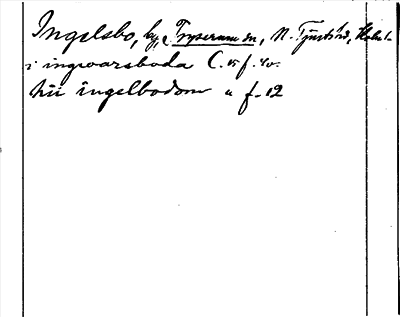 Ingelsbo, by, Tryserum sn, N. Tjust hd,
i ingwarsboda C. 15 f. 40.
hii ingelbodom " f. 12